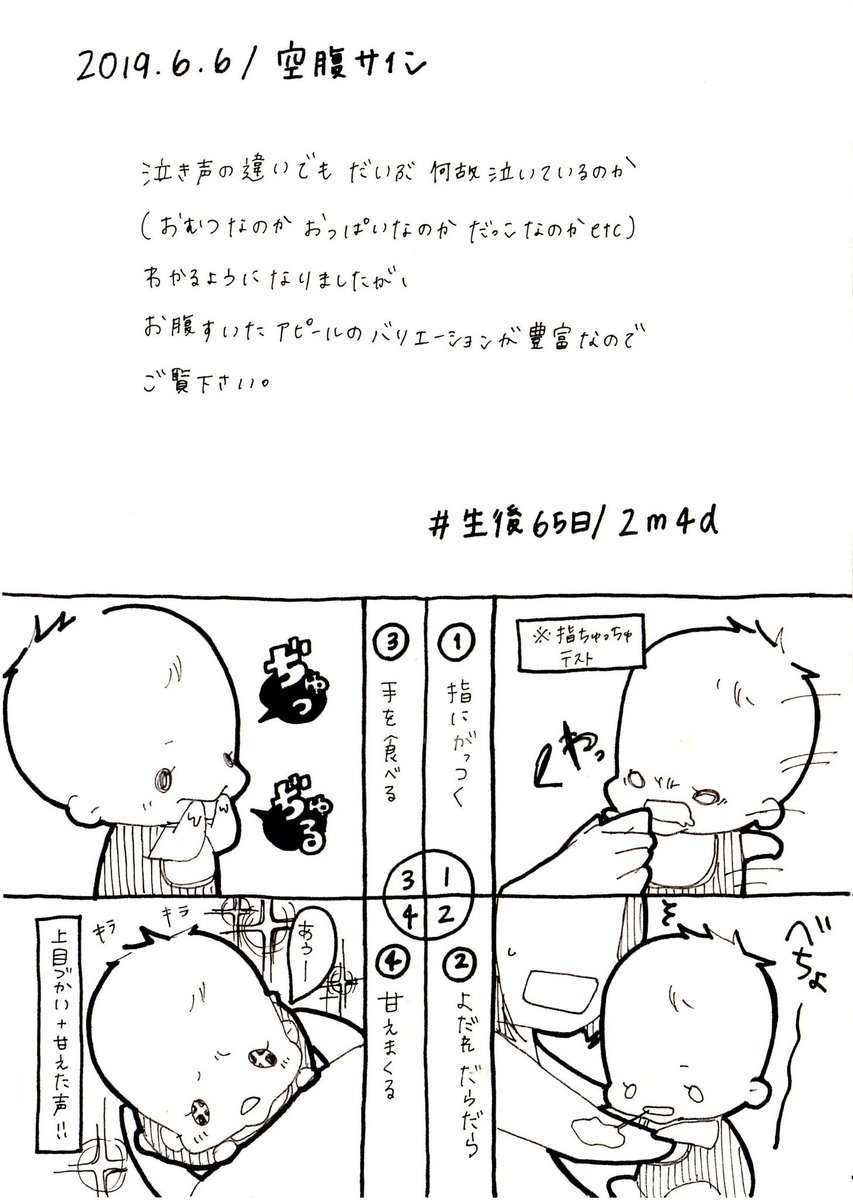 2019.6.6/空腹サイン
泣き声の違いでも だいぶ 何故泣いているのか
(おむつなのか おっぱいなのか だっこなのかetc)
わかるようになりましたが、
お腹すいたアピールのバリエーションが豊富なので
ご覧下さい。
#生後65日/2m4d
①
指にがっつく
※指ちゅっちゅ
テスト
くわっ
②
よだれだらだら
べちょ
③
手を食べる
ぢゅっ
ぢゅる
④
甘えまくる
あうー
キラ
キラ
上目づかい+甘えた声!!
3
1
4
2